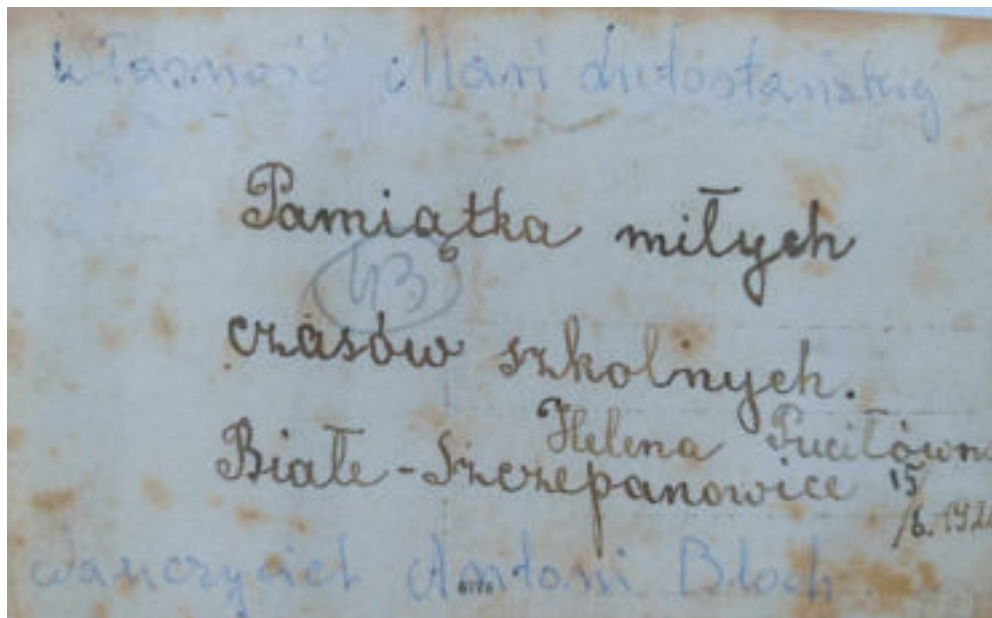 Własność Mari Lutostańskiej
Pamiątka miłych
43
czasów szkolnych.
Helena Pucitówna
Białe-Szczepanowice 15
/6.
Nauczyciel Antoni Bloch